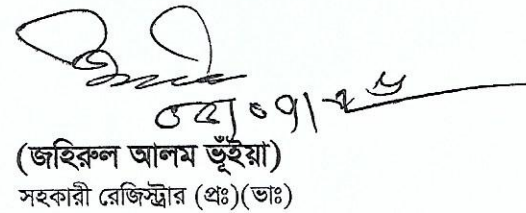 (জহিরুল আলম ভূঁইয়া)
সহকারী রেজিস্ট্রার (প্রঃ)(ভাঃ)